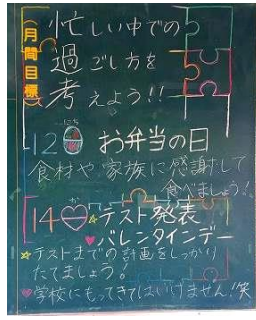 (月間目標)
忙しい中での
過ごし方を
考えよう!!
12日 にち お弁当の日
食材や家族に感謝して
食べましょう!
14 か
☆テスト発表
♥バレンタインデー
☆テストまでの計画をしっかり
たてましょう。
♥学校にもってきてはいけません!笑